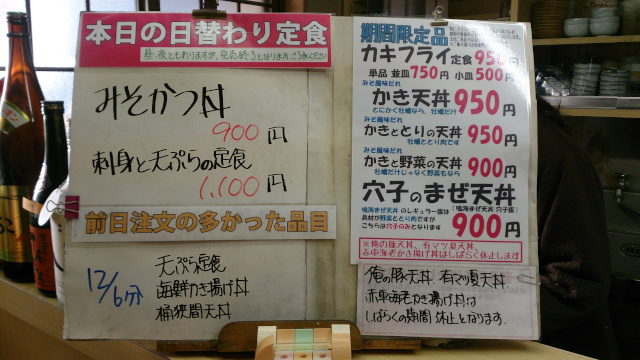 本日の日替わり定食
昼・夜ともありますが、完売終了となります。ご了承ください
みそかつ丼
900円
刺身と天ぷらの定食
1,100円
前日注文の多かった品目
12/6分
天ぷら定食
海鮮かき揚げ丼
桶狭間天丼
期間限定品
カキフライ定食950円
単品 並皿750円 小皿500円
みそ風味だれ
かき天丼950円
とにかく牡蠣なら、牡蠣だけ
みそ風味だれ
かきととりの天丼950円
牡蠣ととり肉です
みそ風味だれ
かきと野菜の天丼900円
牡蠣だけじゃなく野菜もなら
穴子のまぜ天丼
(鳴海まぜ天丼 穴子版)
鳴海まぜ天丼 のレギュラー版は
具材が野菜ととり肉ですが
こちらは穴子のみとなります
900円
※俺の豚天丼、有マツ夏天丼、
赤車海老かき揚げ丼はしばらく休止します
俺の豚天丼 有マツ夏天丼
赤車海老かき揚げ丼は
しばらくの期間 休止となります。